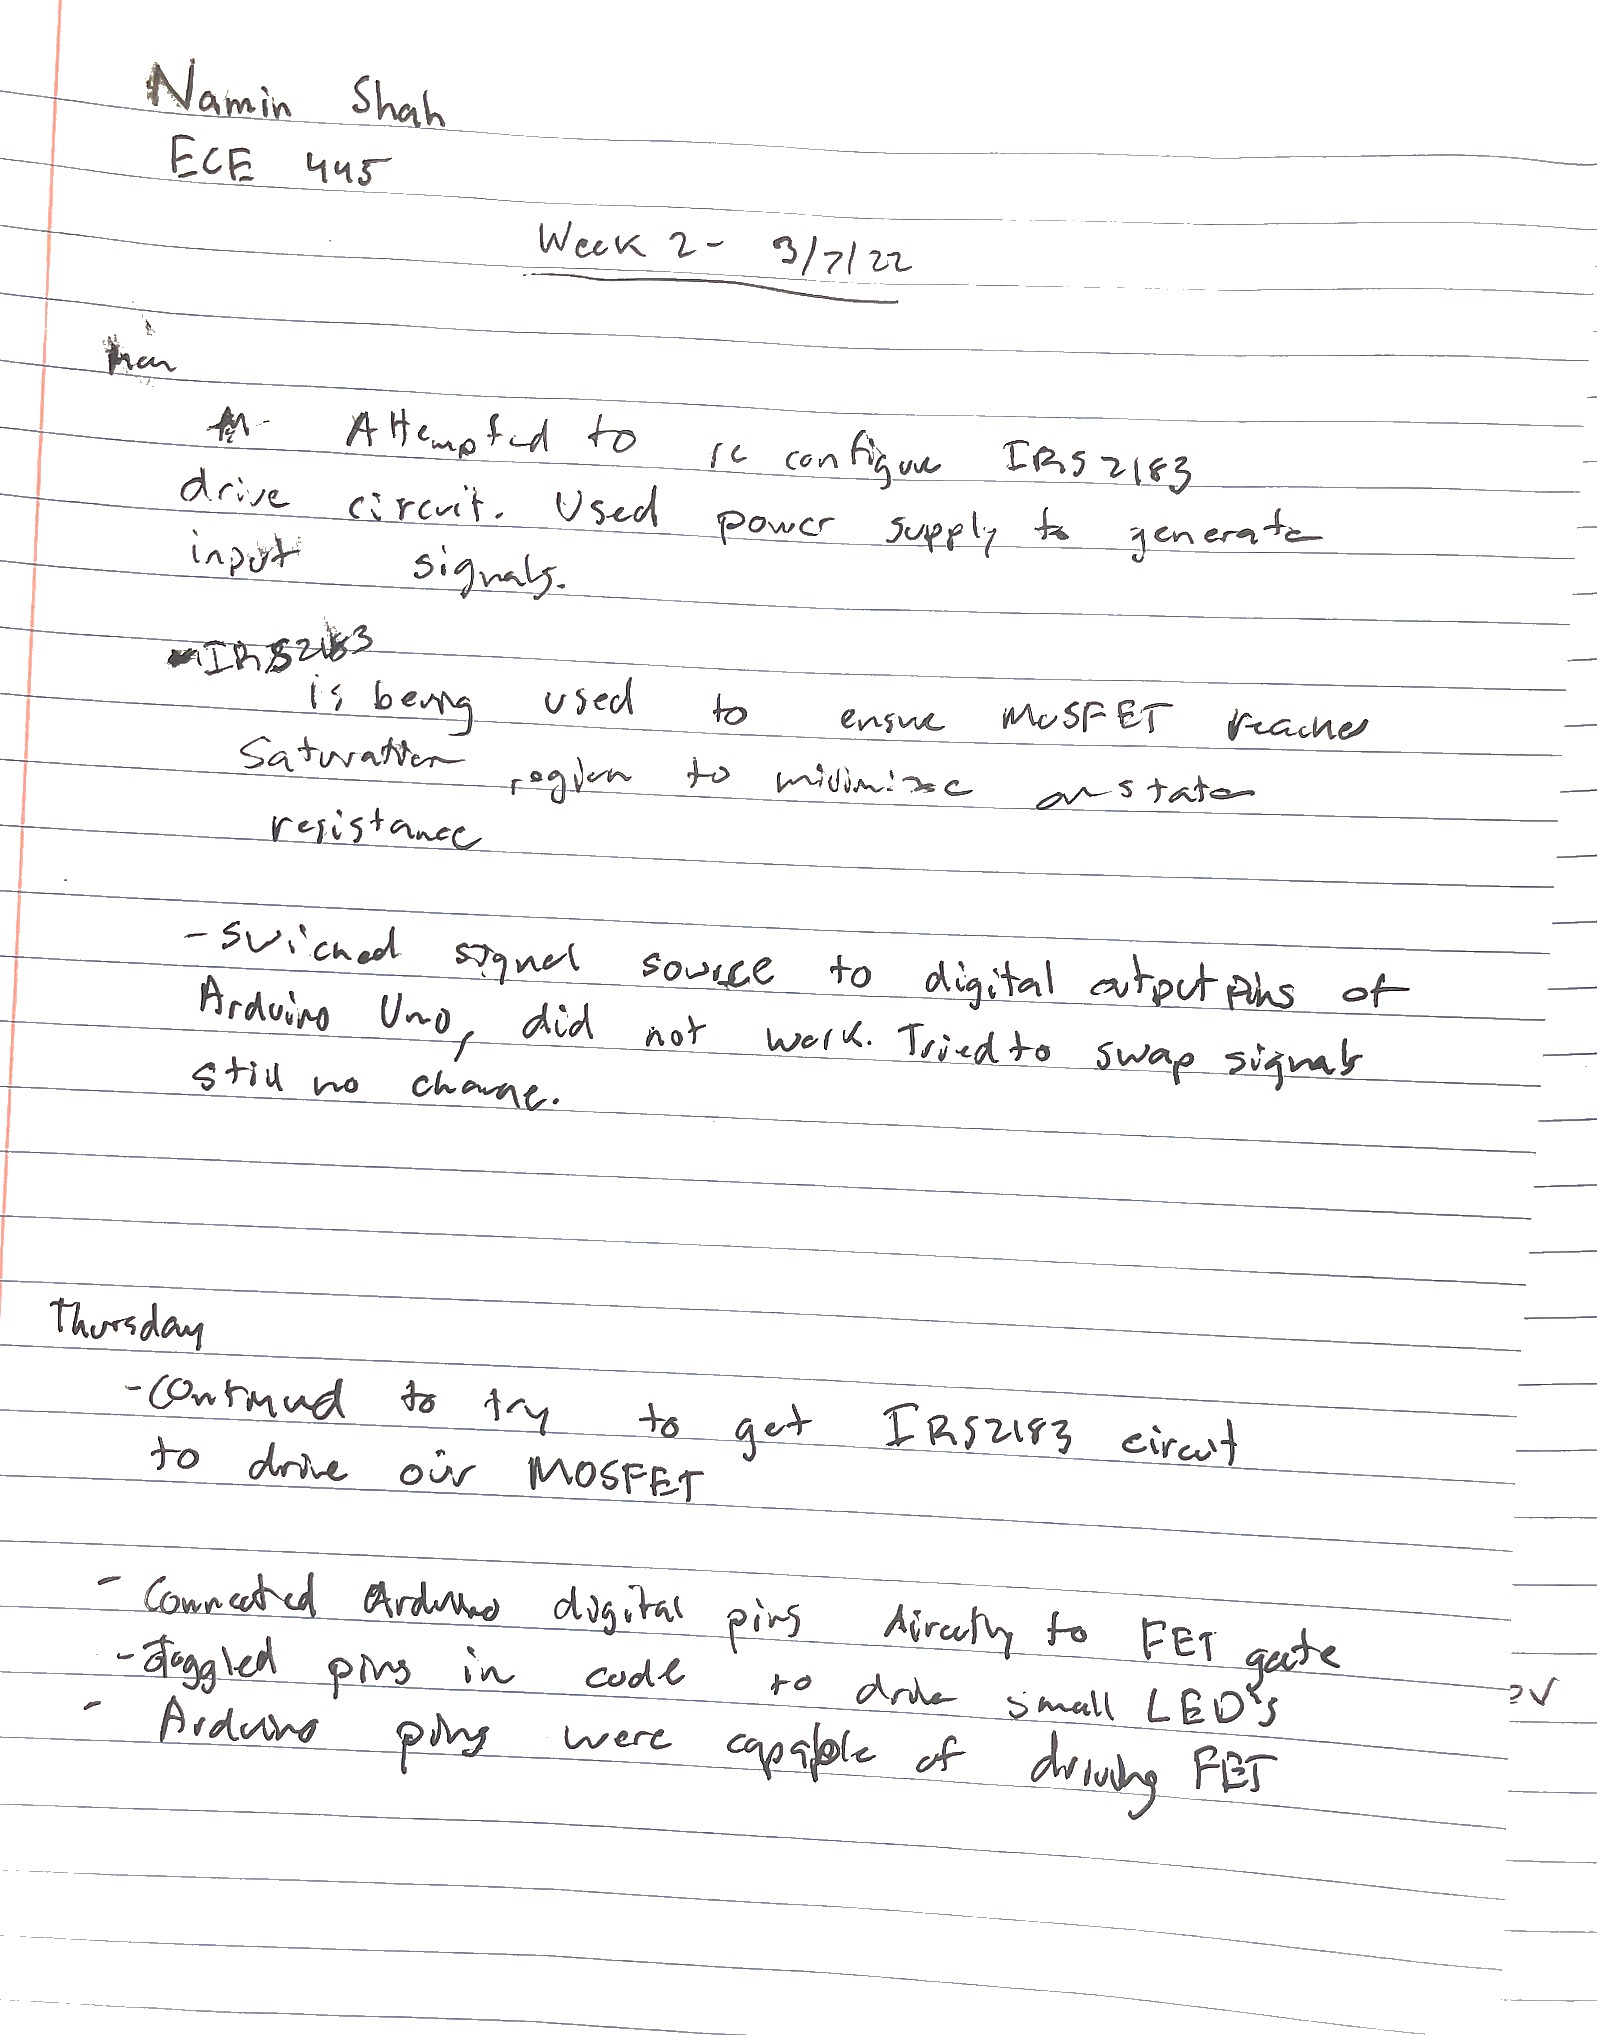 Namin Shah
ECE 445
Week 2 - 3/7/22
- Attempted to reconfigure IRS2183
drive circuit. Used power supply to generate
input signals.
- IRS2183
is being used to ensure MOSFET reaches
saturation region to minimize on state
resistance
- Swiched signal source to digital output pins of
Arduino Uno, did not work. Tried to swap signals
still no change.
Thursday
- Continued to try to get IRS2183 circuit
to drive our MOSFET
- Connected Arduino digital pins directly to FET gate
- Toggled pins in code to drive small LED's
- Arduino pins were capable of driving FET